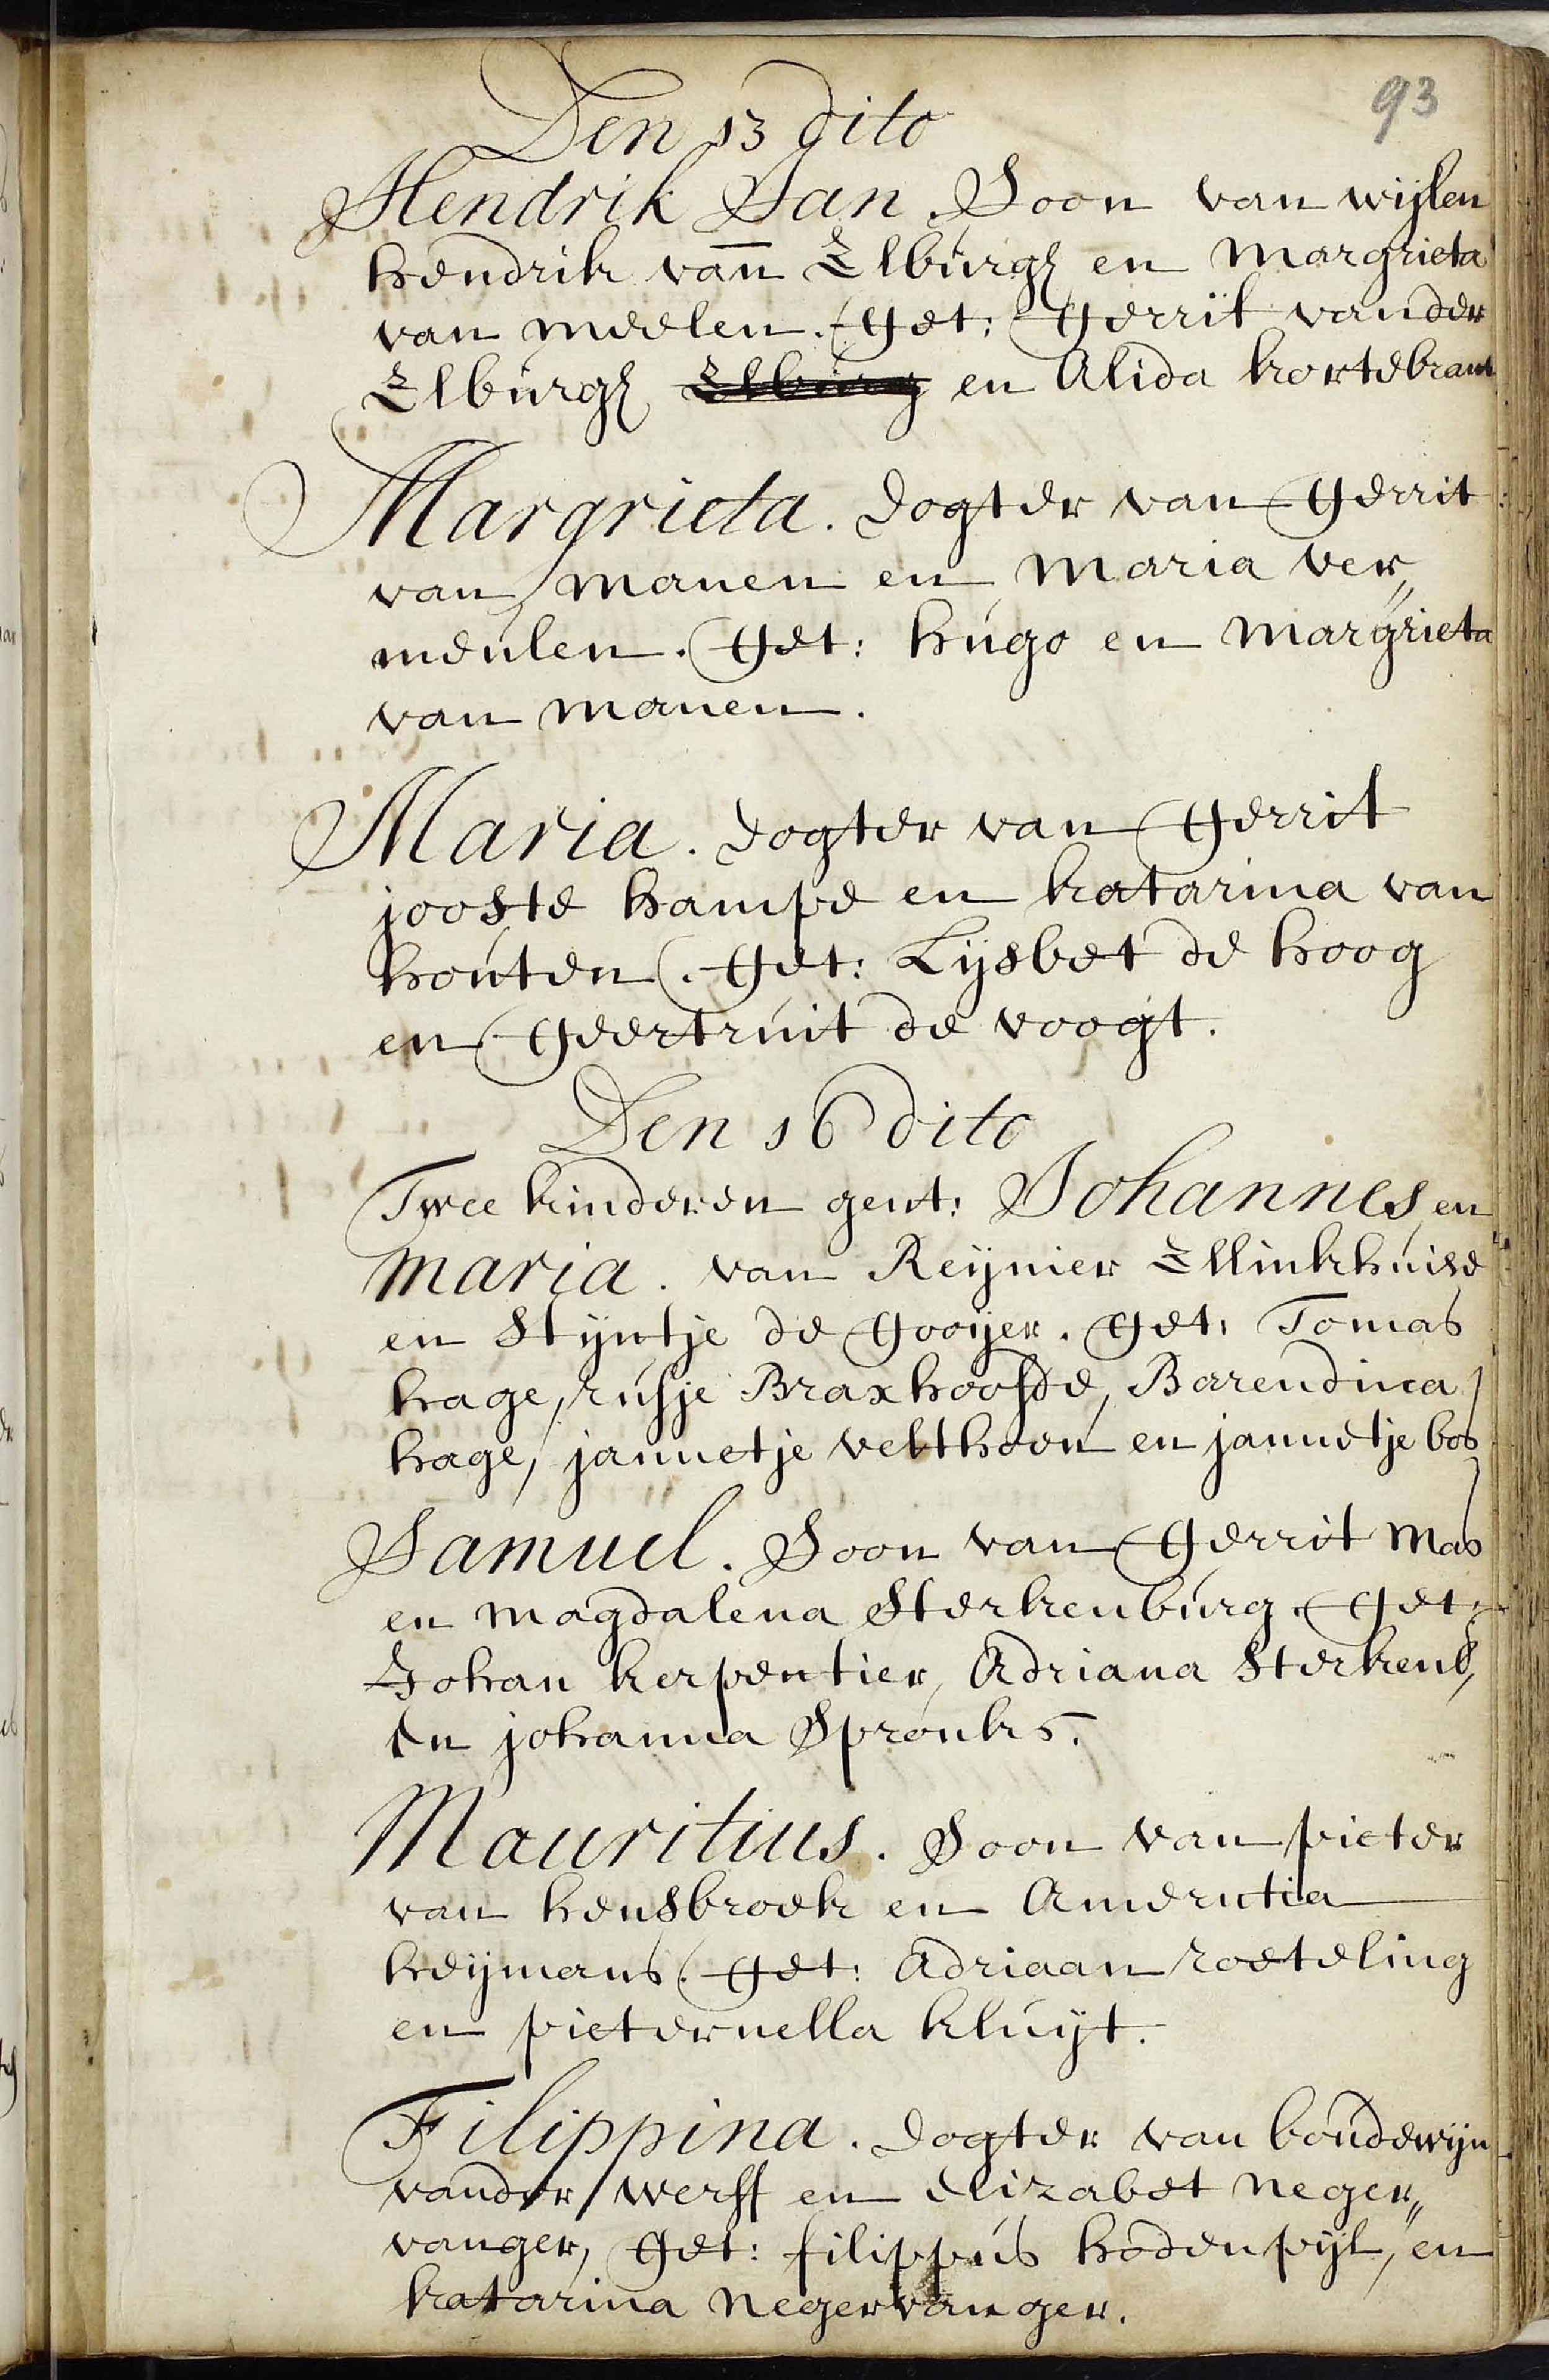 93
Den 13 dito
Hendrik Jan. Soon van wijlen
hendrik van Elburg en Margrieta
van meelen. get: gerrit vander
Elburg Elburg en Alida kortebrant
Margrieta. dogter van gerrit
van manen en maria ver„
meulen. get: hugo en margrieta
van manen.
Maria. dogter van gerrit
jooste kampe en katarina van
houten. get: Lijsbet de hoog
en geertruit de voogt.
Den 16 dito
Twee kinderen gent: Johannes en
Maria. van Reijnier Ellinkhuise
en Stijntje de gooijer. get: Tomas
hage, rusje Braxhoofde, Barendina
hage, jannetje velthoen en jannetje bos
Samuel. Soon van gerrit Mas
en magdalena Sterkenburg. get:
Johan kerpentier, Adriana Sterkenb,
en johanna Spronks.
Mauritius. Soon van pieter
van hensbroek en Amerentia
heijmans. get: Adriaan roeteling
en pieternella kluijt.
Filippina. dogter van boudewijn
vander werff en elizabet neger„
vanger, get: filippus hodenpijl, en
katarina negervanger.